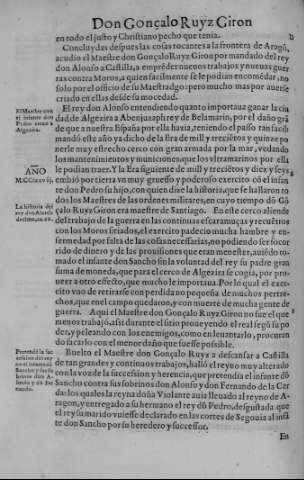 Don Gonçalo Ruyz Giron
en todo el justo y Christiano pecho que tenia.
Concluydas despues las cosas tocantes a la frontera de Aragō,
acudio el Maestre don Gonçalo Ruyz Giron por mandado del rey
don Alonso a Castilla, a emprēder nueuos trabajos y nueuas guer
ras contra Moros, a quien facilmente se le podian encomēdar, no
solo por el officio de su Maestradgo: pero mucho mas por auerse
criado en ellas desde su mocedad.
El rey don Alonso entendiendo quanto importaua ganar la ciu
dad de Algezira a Abenjuzaphrey de Belamarin, por el daño grā
de que a nuestra España por ella hazia, teniendo el passo tan facil:
mandó este año ya dicho de la era de mill y treziētos y quinze po
nerle muy estrecho cerco con gran armada por la mar, vedando
los mantenimientos y municiones, que los vltramarinos por ella
le podian traer. Y la Era siguiente de mill y treziētos y diez y seys
embió por tierra vn muy gruesso y poderoso exercito cō el infan
te don Pedro su hijo, con quien dize la historia, que se hallaron to
dos los Maestres de las ordenes militares, en cuyo tiempo dō Gō
çalo Ruyz Giron era maestre de Santiago. En este cerco aliende
del trabajo de la guerra en las continuas escaramuças y recuētros
con los Moros sitiados, el exercito padecio mucha hambre y en-
fermedad por falta de las cosas necessarias, no podiendo ser socor
rido de dinero y de las prouisiones que eran menester, auiēdo to-
mado el infante don Sancho sin la voluntad del rey su padre gran
suma de moneda, que para el cerco de Algezira se cogia, por pro-
ueer a otro effecto, que mucho le importaua. Por lo qual el exer-
cito vuo de retirarse con perdida no pequeña de muchos pertre-
chos, que en el campo quedaron, y con muerte de mucha gente de
guerra. Aqui el Maestre don Gonçalo Ruyz Giron no fue el que
menos trabajó, assi durante el sitio proueyendo el real segū su po
der, y peleando con los enemigos, como en leuantarlo, procuran
do sacarlo con el menor daño que fuesse possible.
Buelto el Maestre don Gonçalo Ruyz a descansar a Castilla
de tan grandes y continuos trabajos, halló el reyno muy alterado
con la voz de la successsion y herencia, que pretendia el infante dō
Sancho contra sus sobrinos don Alonso y don Fernando de la Cer
da: los quales la reyna doña Violante auia lleuado al reyno de Ar-
agon, y entregado a su hermano el rey dō Pedro, desgustada que
el rey su marido vuiesse declarado en las cortes de Segouia al infā
te don Sancho por su heredero y successor.
En
El Maestre con
el infante don
Pedro cerca a
Algezira.
AÑO
La historia del
rey don Alonso
Pretende la suc
cession del rey
no el infante dō
Sancho